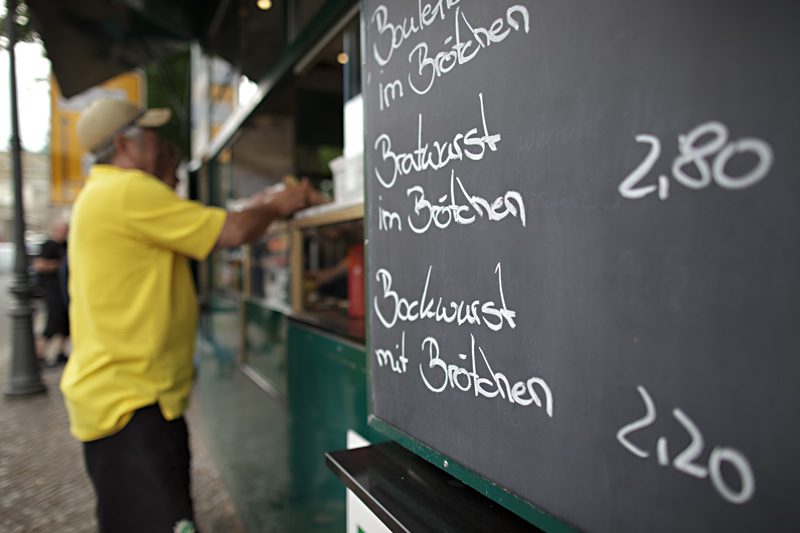 im Brötchen
Bratwurst
im Brötchen 2,80
Bockwurst
mit Brötchen 2,20